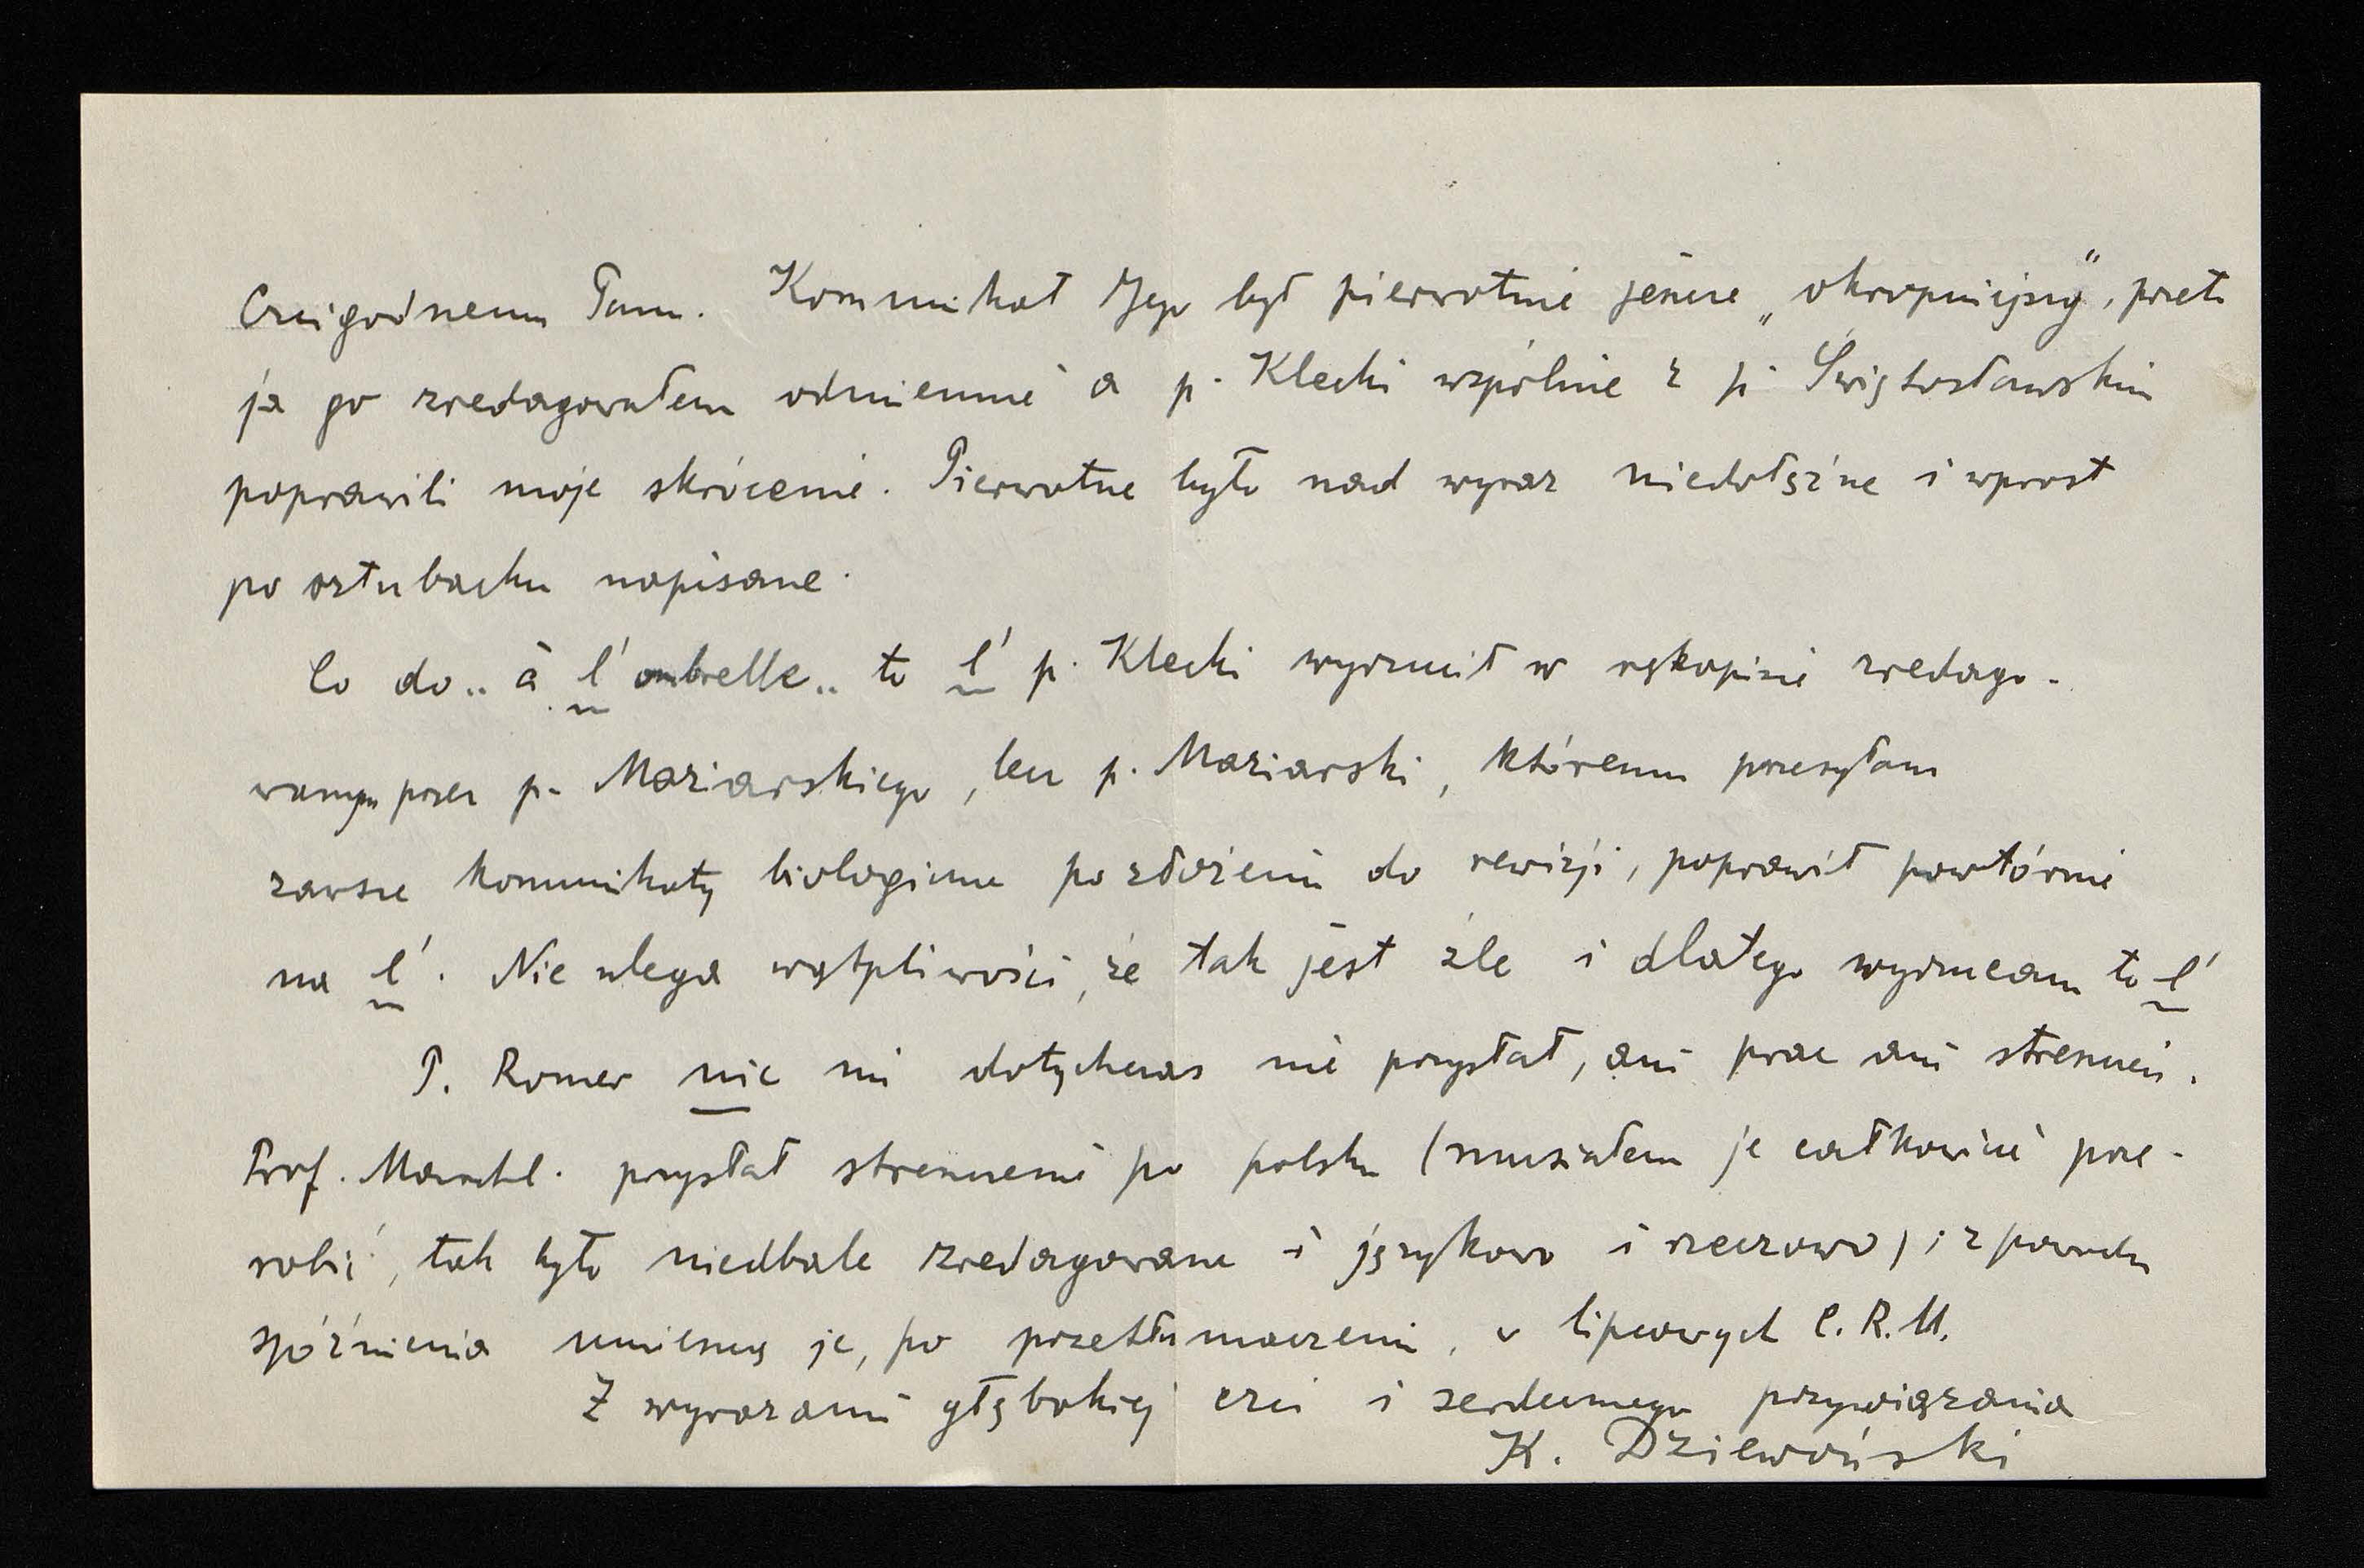 Czcigodnemu Panu. Kommunikat Jego był pierwotnie jeszcze „okropniejszy", przeto
ja go zredagowałem odmiennie a p. Klecki wspólnie z p. Świętosławskim
poprawili moje skrócenie. Pierwotne było nad wyraz niedołężne i wprost
po sztubacku napisane.
Co do „à l'ombrelle„ to l' p. Klecki wyrzucił w rękopisie zredago-
wanym przez p. Maziarskiego, lecz p. Maziarski, któremu przesyłam
zawsze kommunikaty biologiczne po złożeniu do rewizji, poprawił powtórnie
na l'. Nie ulega wątpliwości, że tak jest źle i dlatego wyrzucam to l'
P. Romer nic mi dotychczas nie przysłał, ani prac ani streszczeń.
Prof. Marchl. przysłał streszczenie po polsku (musiałem je całkowicie prze-
robić, tak było niedbale zredagowane i językowo i rzeczowo) i z powodu
spóźnienia umieszczę je, po przetłumaczeniu, w lipcowych C.R.M.
Z wyrazami głębokiej czci i serdecznego przywiązania
K. Dziewoński